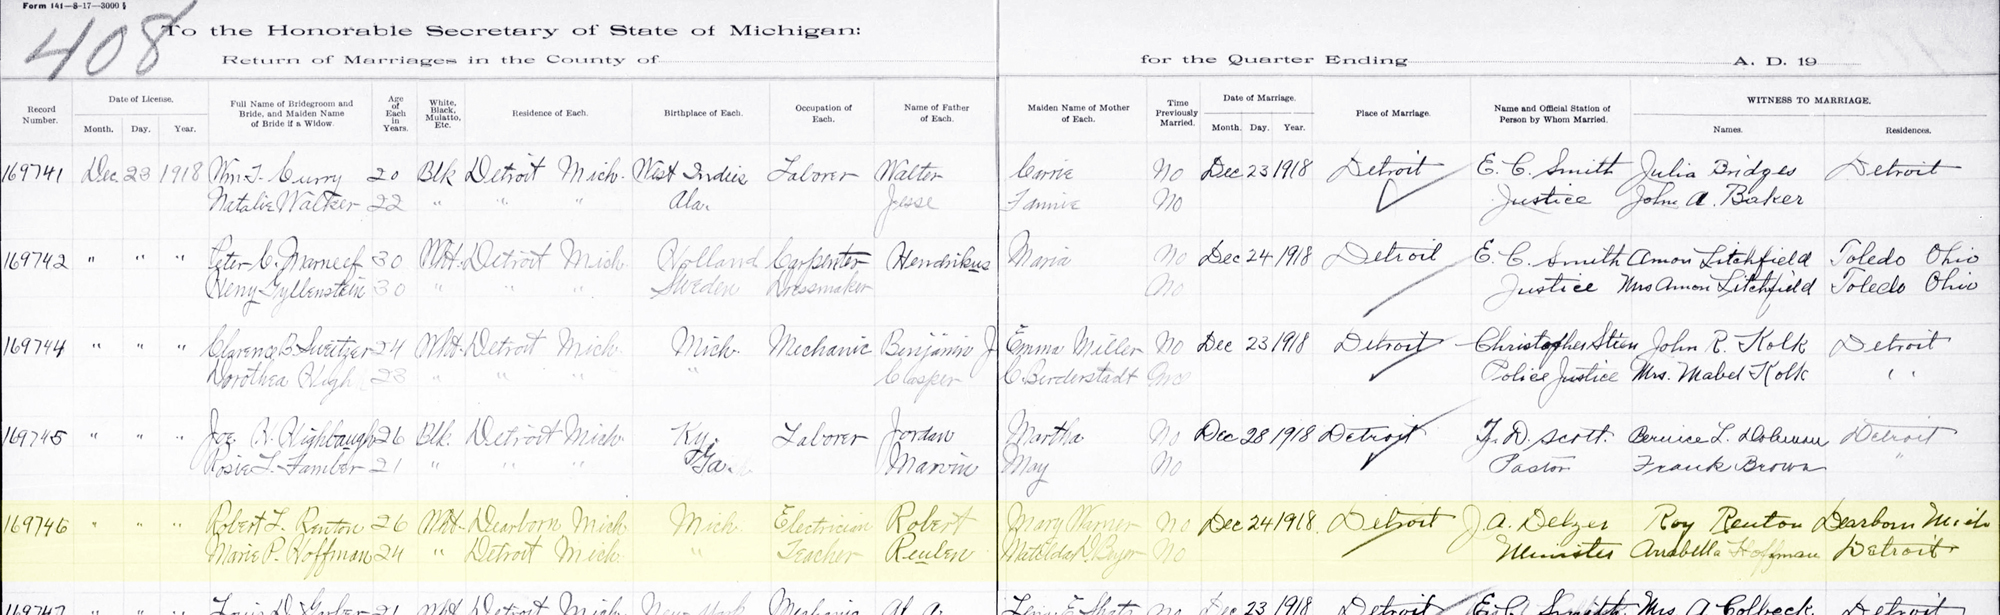 Form 141—8-17—3000 §
408
To the Honorable Secretary of State of Michigan:
Return of Marriages in the County of for the Quarter Ending A. D. 19
Record Number. Date of License. Month. Day. Year. Full Name of Bridegroom and Bride, and Maiden Name of Bride if a Widow. Age of Each in Years. White, Black, Mulatto, Etc. Residence of Each. Birthplace of Each. Occupation of Each. Name of Father of Each. Maiden Name of Mother of Each. Time Previously Married. Date of Marriage. Month. Day. Year. Place of Marriage. Name and Official Station of Person by Whom Married. WITNESS TO MARRIAGE. Names. Residences.
169741 Dec 23 1918 Wm T. Curry 20 Blk Detroit Mich. West Indies Laborer Walter Carrie No Dec 23 1918 Detroit E. C. Smith Julia Bridges Detroit
Natalie Walker 22 " " " Ala. Jesse Fannie No Justice John A. Baker
169742 " " " Peter C. 30 Wht. Detroit Mich Holland Carpenter Hendrikus Maria No Dec 24 1918 Detroit E. C. Smith Amon Litchfield Toledo Ohio
Heny Gyllenstein 30 " " " Sweden Dressmaker No Justice Mrs Amon Litchfield Toledo Ohio
169744 " " " Clarence B. Sweitzer 24 Wht. Detroit Mich. Mich. Mechanic Benjamin J Emma Miller No Dec 23 1918 Detroit Christopher Stein John R. Kolk Detroit
Dorothea High 23 " " " " Casper C. Berderstadt No Police Justice Mrs. Mabel Kolk " "
169745 " " " Joe. H. Highbaugh 26 Blk. Detroit Mich. Ky. Laborer Jordan Martha No Dec 28 1918 Detroit D. Scott. Bernice L. Detroit
Rosie L. Famber 21 " " " Ga. Marvin May No Pastor Frank Brown "
169746 " " " Robert L. Renton 26 Wht. Dearborn Mich Mich Electrician Robert Mary Warner No Dec 24 1918. Detroit J. A. Detzer Roy Renton Dearborn Mich
Marie P. Hoffman 24 " Detroit Mich. " Teacher Reuben Matilda D. Beyer No Minister Arabella Hoffman Detroit
169747 " " " Louis D. 21 Wht Detroit Mich. New York Mechanic Lena E. No Dec 23 1918 Detroit E. C. Smith Mrs A Colbeck Detroit